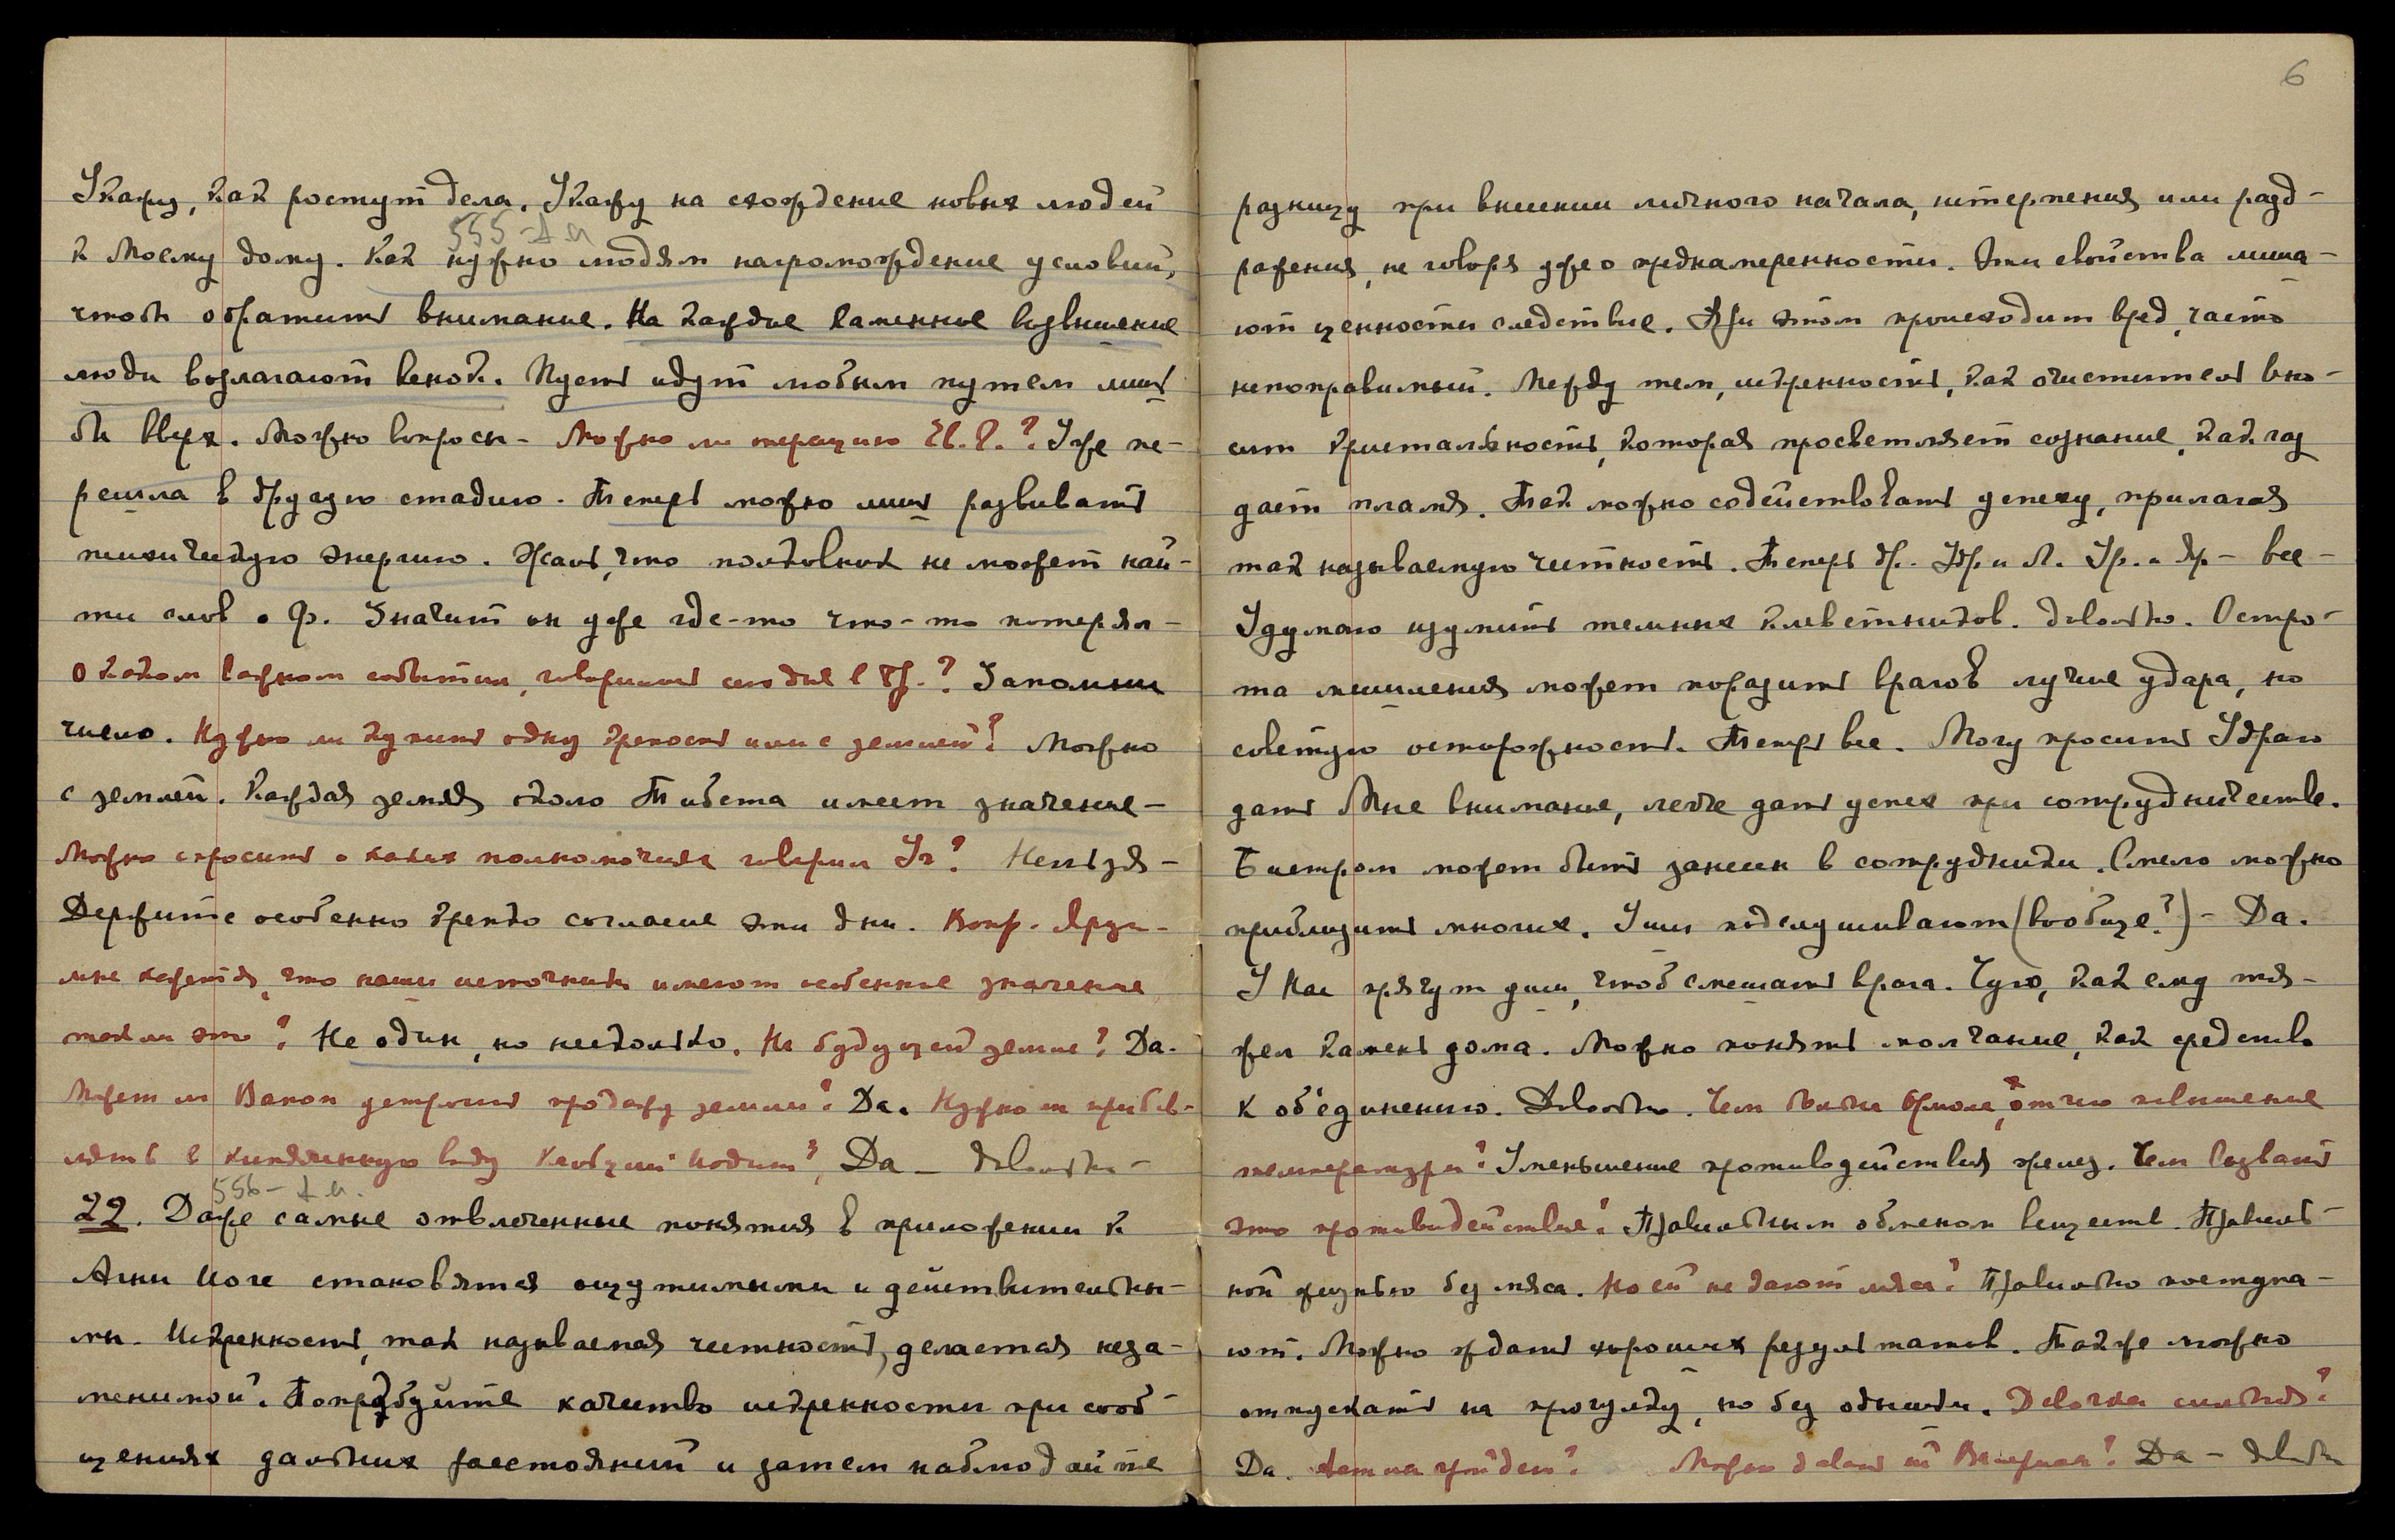 Укажу, как ростут дела. Укажу на схождение новых людей
555-А.И
к Моему дому. Как нужно людям нагромождение условий,
чтобы обратить внимание. На каждое каменное возвышение
люди возлагают венок. Пусть идут любым путем лишь
бы вверх. Можно вопросы - Можно ли терацию Ев. Р.? Уже пе-
решла в другую стадию. Теперь можно лишь развивать
психическую энергию. Жаль, что полковник не может най-
ти слов о Ф. Значит он уже где-то что-то потерял -
О каком важном событии, говорилось сегодня в Тр.? Запомни
число. Нужно ли купить одну крепость или с землей? Можно
с землей. Каждая земля около Тибета имеет значение -
Можно спросить о каких полномочиях говорил Уч? Нельзя -
Держите особенно крепко согласие эти дни. Вопр. Яруи -
мне кажется, что наши источники имеют особенное значение
так ли это? Не один, но несколько. На будущей земле? Да.
Может ли Ванон устроить продажу земли? Да. Нужно ли прибав-
лять в кипяченную воду Кальций Иодит? Да - довольно -
556-А.И.
22. Даже самые отвлеченные понятия в приложении к
Агни Иоге становятся ощутимыми и действительны-
ми. Искренность, так называемая честность, делается неза-
менимой. Попробуйте качество искренности при сооб-
щениях дальних расстояний и затем наблюдайте
6
разницу при внесении личного начала, нетерпения или разд-
ражения, не говоря уже о преднамеренности. Эти свойства лиша-
ют ценности следствие. При этом происходит вред, часто
непоправимый. Между тем, искренность, как очиститель вно-
сит кристальность, которая просветляет сознание, как газ
дает пламя. Так можно содействовать успеху, прилагая
так называемую честность. Теперь др. Удр. и Л. Ур. и Яр - все -
Удумаю изумить темных клеветников. Довольно. Остро-
та мышления может поразить врагов лучше удара, но
советую осторожность. Теперь все. Могу просить Удраю
дать Мне внимание, легче дать успех при сотрудничестве.
Бистром может быть занесен в сотрудники. Смело можно
приблизить многих. Уши подслушивают (вообще?) - Да.
У Нас прячут уши, чтоб смешать врага. Чую, как ему тя-
жел камень дома. Можно понять молчание, как средство
к об'единению. Довольно. Чем было отчего повышение
температуры? Уменьшение противодействия желез. Чем вызвать
это противодействие? Правильным обменом веществ. Правиль-
ной жизнью без мяса. Но ей не дают мяса? Правильно поступа-
ют. Можно ждать хороших результатов. Также можно
отпускать на прогулку, но без одышки. Девочка сильная?
Да. Астма пройдет? Можно давать ей Валериан? Да - довольно